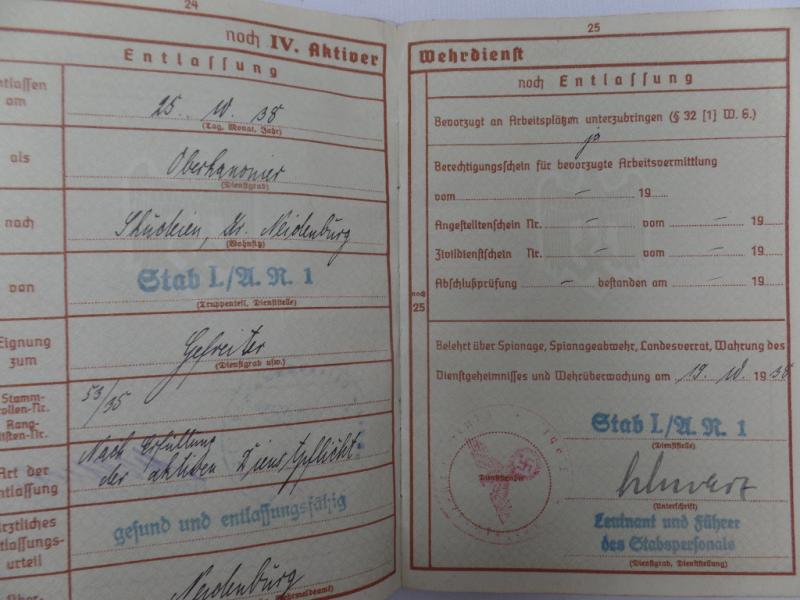 24
noch IV. Aktiver
Entlassung
ntlassen
am
25. 10. 38
(Tag, Monat, Jahr)
als
Oberkanonier
(Dienstgrad)
nach
Kr. Neidenburg
(Wohnsitz)
von
Stab I./A.R. 1
(Truppenteil, Dienststelle)
Eignung
zum
Gefreiter
(Dienstgrad usw.)
Stamm-
rollen-Nr.
Rang-
listen-Nr.
53/35
Art der
ntlassung
Nach Erfüllung
der aktiven Dienstpflicht
rztliches
tlassungs-
urteil
gesund und entlassungsfähig
Neidenburg
25
Wehrdienst
noch Entlassung
Bevorzugt an Arbeitsplätzen unterzubringen (§ 32 [1] W. G.)
ja
Berechtigungsschein für bevorzugte Arbeitsvermittlung
vom – 19
Angestelltenschein Nr. – vom – 19
Zivildienstschein Nr. – vom – 19
Abschlußprüfung – bestanden am – 19
noch
25
Belehrt über Spionage, Spionageabwehr, Landesverrat, Wahrung des
Dienstgeheimnisses und Wehrüberwachung am 19. 10. 1938
Stab I./A.R. 1
(Dienststelle)
Dienstsiegel
Schwarz
(Unterschrift)
Leutnant und Führer
des Stabspersonals
(Dienstgrad, Dienststellung)